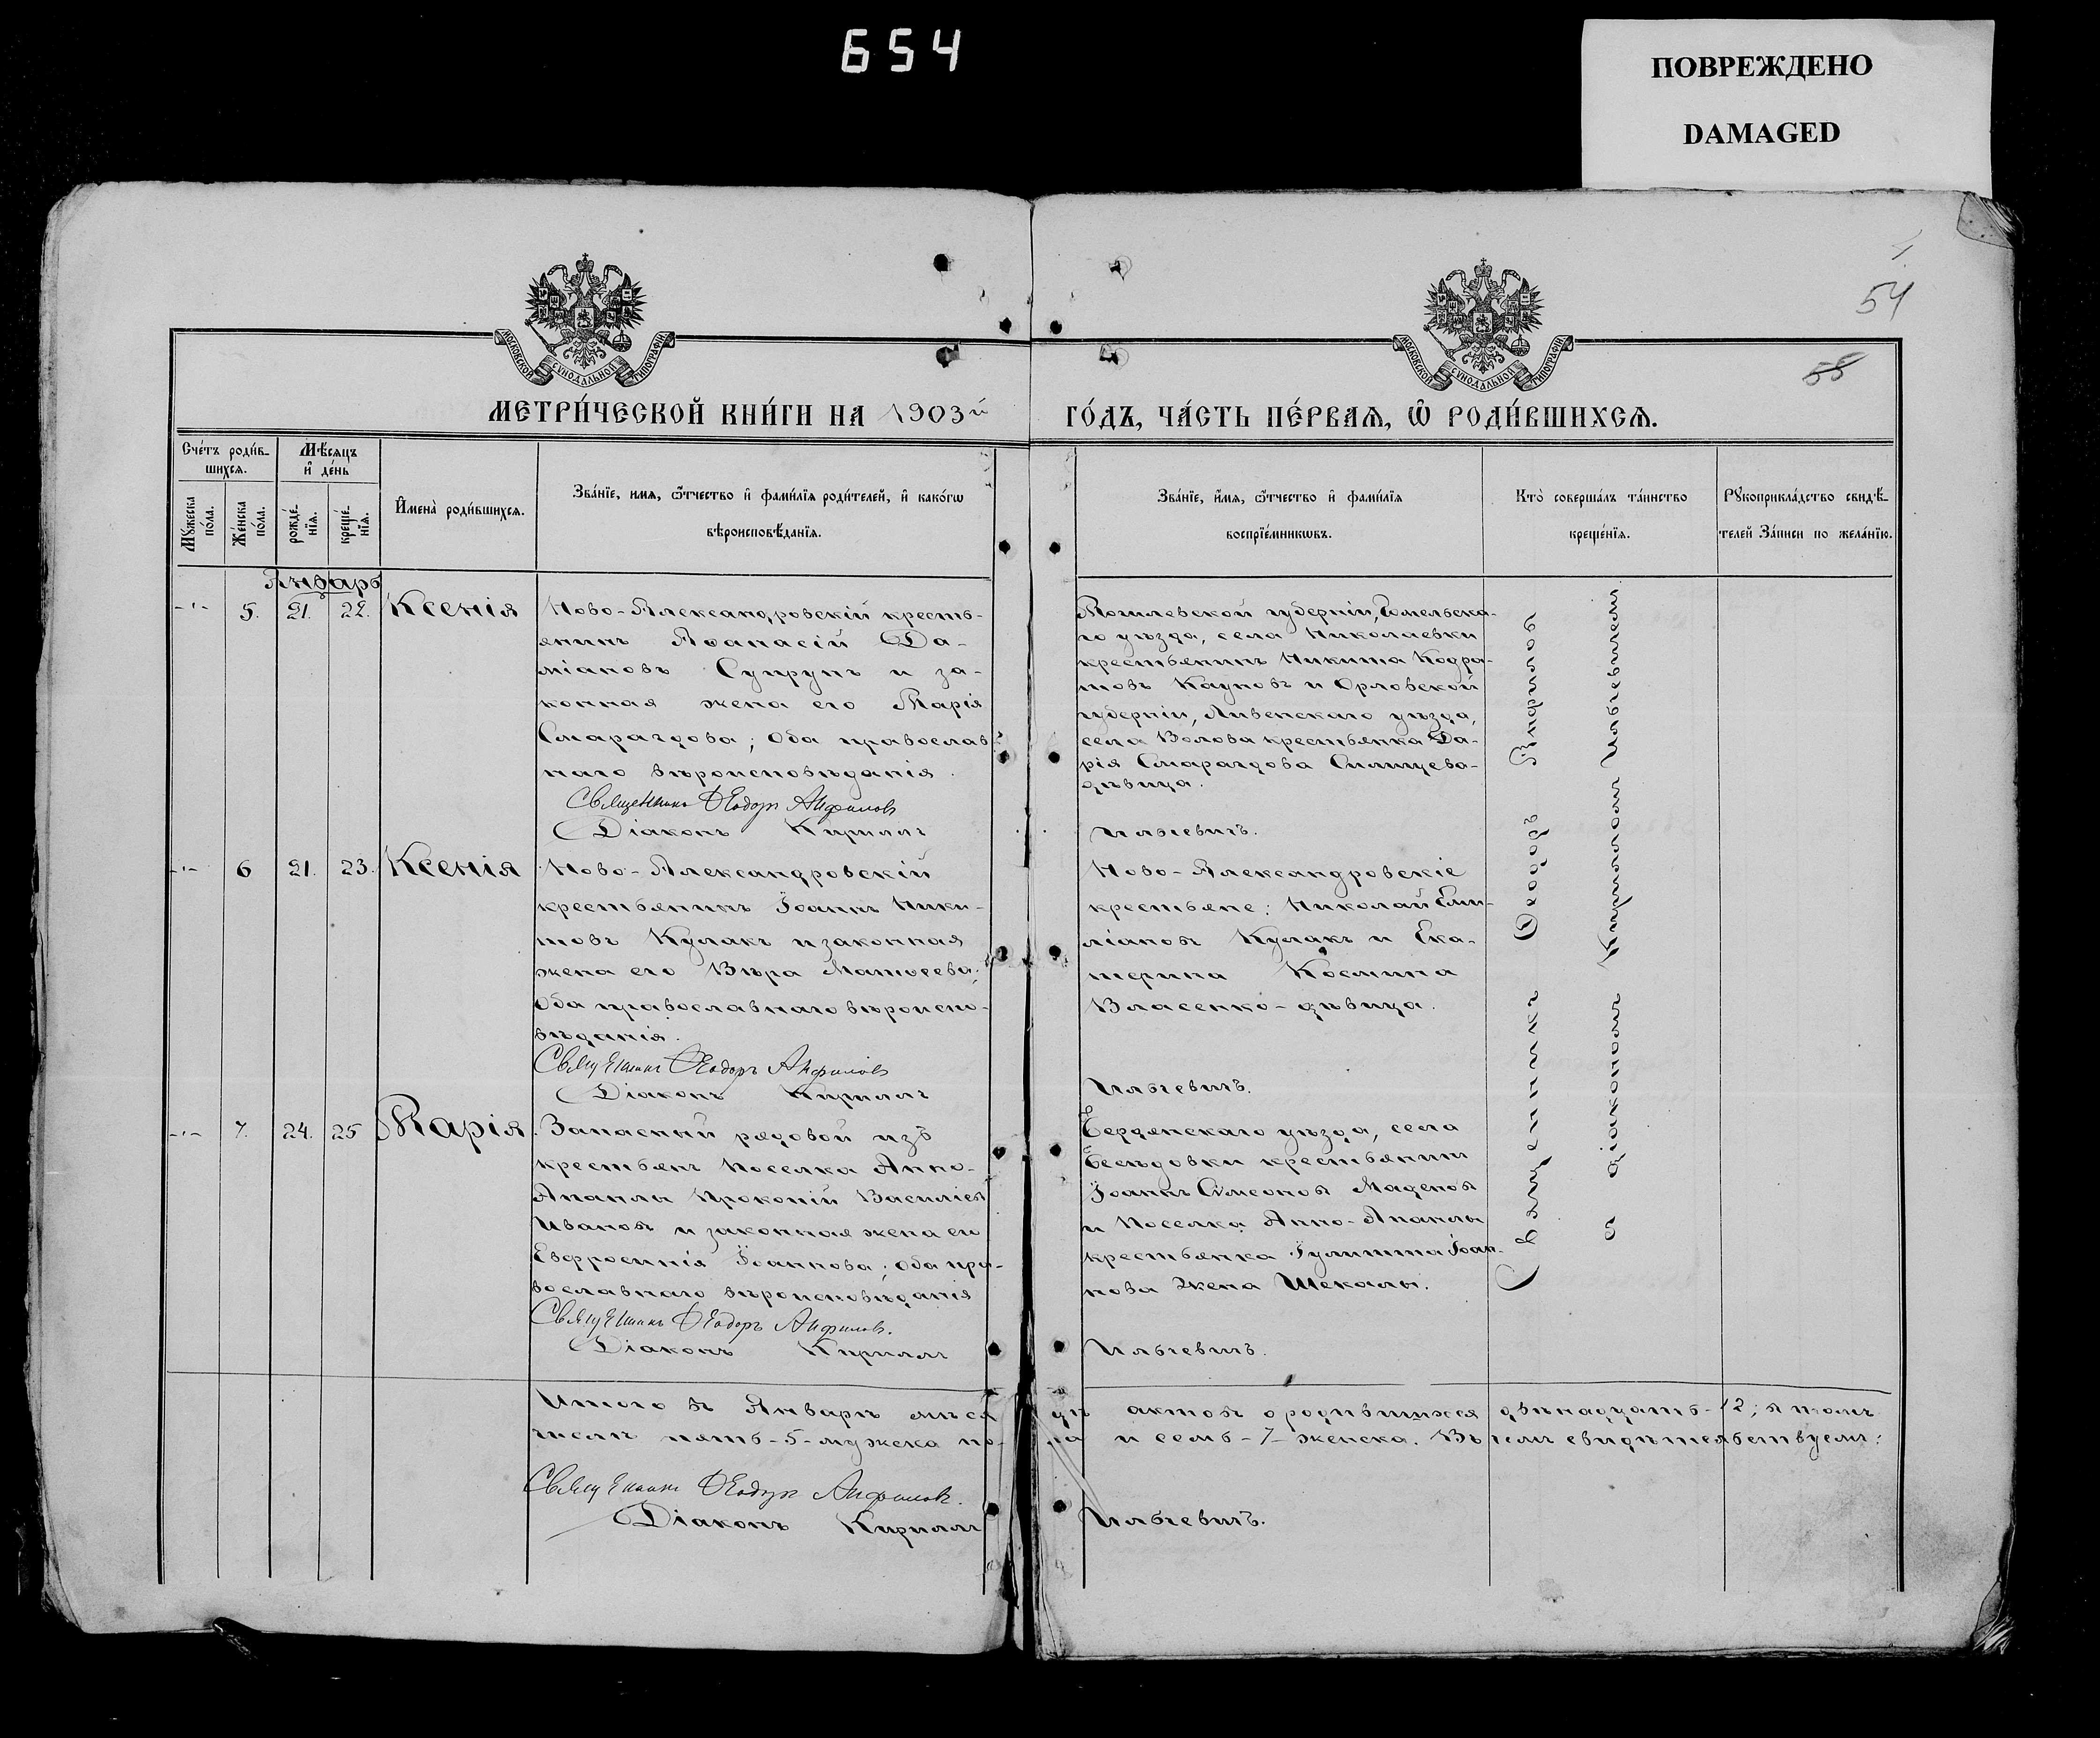 654
ПОВРЕЖДЕНО
DAMAGED
54
55
МОСКОВСКОЙ СѴНОДАЛЬНОЙ ТИПОГРАФІИ
МОСКОВСКОЙ СѴНОДАЛЬНОЙ ТИПОГРАФІИ
МЕТРИ́ЧЕСКОЙ КНИ́ГИ НА 1903й ГО́ДЪ, ЧА́СТЬ ПЕ́РВАѦ, Ѡ РОДИ́ВШИХСѦ.
Сче́тъ роди́вшихсѧ.
Мѣ́сѧцъ и де́нь
Му́жеска по́ла.
Же́нска по́ла.
рожде́нїѧ.
креще́нїѧ.
Имена̀ роди́вшихсѧ.
Зва́нїе, имѧ, ѻ́тчество и фами́лїѧ роди́телей, и како́гѡ
вѣроисповѣ́данїѧ.
Зва́нїе, и́мѧ, ѻ́тчество и фами́лїѧ
воспрїе́мникѡвъ.
Кто̀ соверша́лъ та́инство
креще́нїѧ.
Рꙋкоприкла́дство свидѣ́телей за́писи по жела́нїю.
Январь
5. 21. 22. Ксенія
Ново-Александровскій кресть-
янинъ Аѳанасій Да-
міановъ Супрунъ и за-
конная жена его Марія
Смарагдова; Оба православ
наго вѣроисповѣданія.
Священникъ Ѳеодоръ Анфиловъ
Діаконъ Кириллъ Ильгевичъ.
Могилевской губерніи, Гомельска-
го уѣзда, села Николаевки
крестьянинъ Никита Кодра-
товъ Кауновъ и Орловской
губерніи, Ливенскаго уѣзда,
села Волова крестьянка Да-
рія Смарагдова
дѣвица.
6 21. 23. Ксенія
Ново-Александровскій
крестьянинъ Іоаннъ Ники-
товъ Кулакъ и законная
жена его Вѣра Матѳеева;
Оба православнаго вѣроиспо-
вѣданія.
Священникъ Ѳеодоръ Анфиловъ
Діаконъ Кириллъ Ильгевичъ.
Ново-Александровскіе
крестьяне: Николай Еми-
ліановъ Кулакъ и Ека-
терина Космина
Власенко-дѣвица.
7. 24. 25 Марія.
Запасный рядовой изъ
крестьянъ Поселка Анно-
Апанлы Прокопій Василіевъ
Ивановъ и законная жена его
Евфросинія Іоаннова; оба пра-
вославнаго вѣроисповѣданія
Священникъ Ѳеодоръ Анфиловъ.
Діаконъ Кириллъ Ильгевичъ.
Бердянскаго уѣзда, села
Бесѣдовки крестьянинъ
Іоаннъ Сѵмеоновъ Маденовъ
и Поселка Анно-Апанлы
крестьянка Іулитта Іоан-
нова жена Шекалы.
Священникъ Ѳеодоръ Анфиловъ
съ діакономъ Кирилломъ Ильгевичемъ
Итого въ Январѣ мѣсяцѣ актовъ о родившихся двѣнадцать-12; въ томъ
числѣ пять-5-мужеска пола и семь-7-женска. Въ чемъ свидѣтельствуемъ:
Священникъ Ѳеодоръ Анфиловъ.
Діаконъ Кириллъ Ильгевичъ.